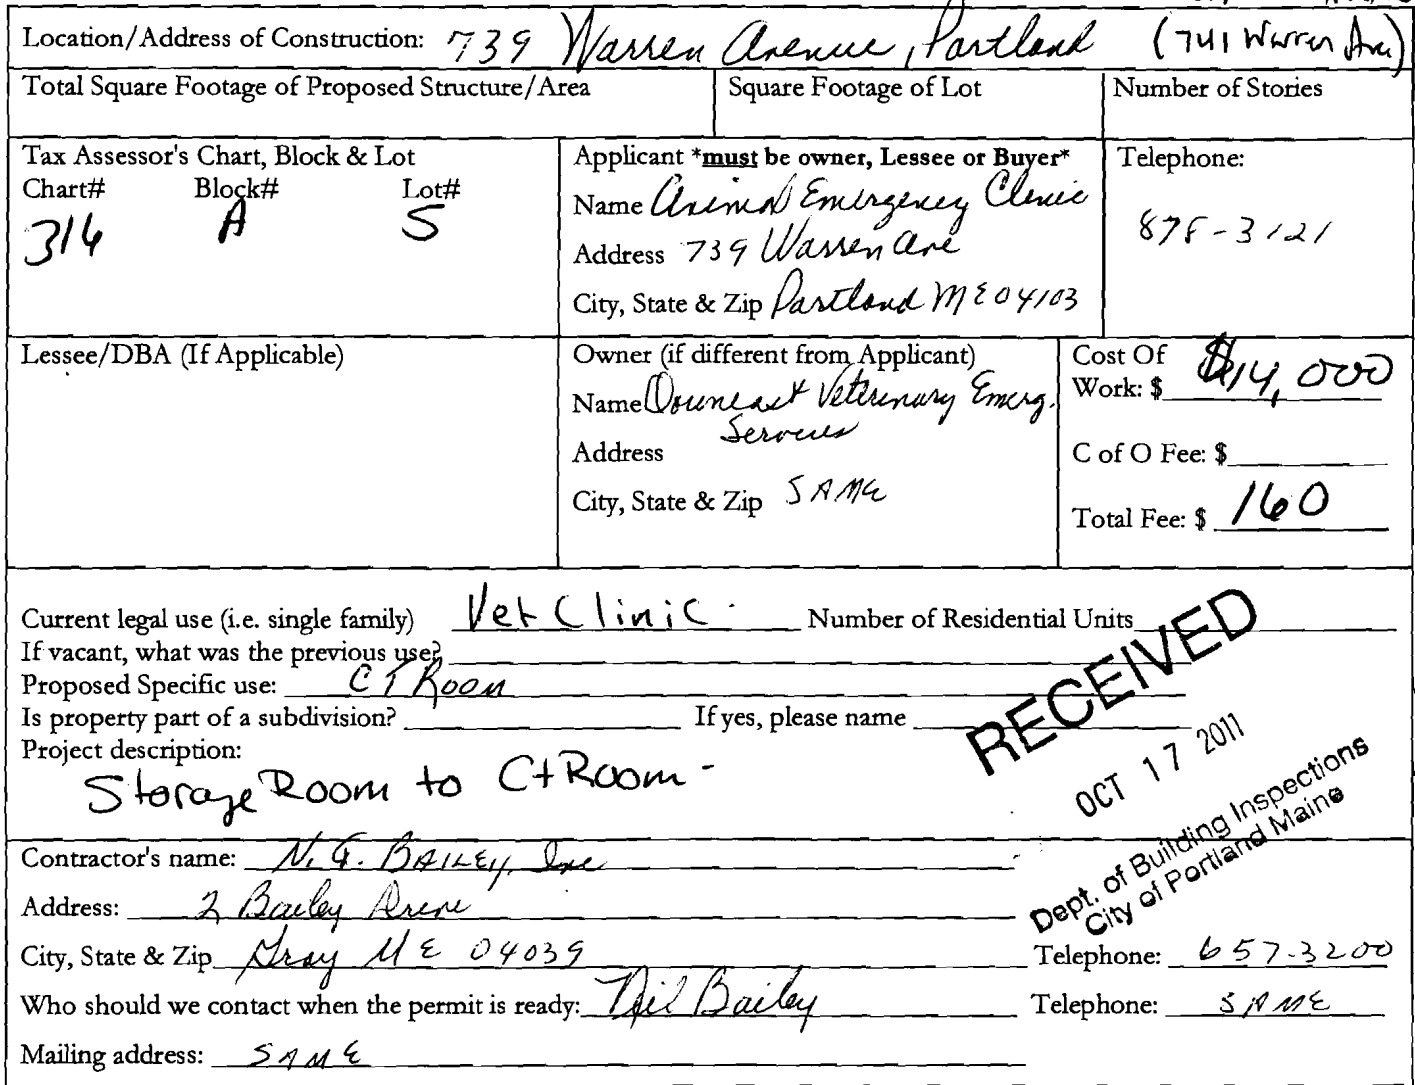 Location/Address of Construction: 739 Warren Avenue, Portland (741 Warren Ave)
Total Square Footage of Proposed Structure/Area Square Footage of Lot Number of Stories
Tax Assessor's Chart, Block & Lot
Chart# Block# Lot#
316 A 5
Applicant *must be owner, Lessee or Buyer*
Name Animal Emergency Clinic
Address 739 Warren Ave
City, State & Zip Portland ME 04103
Telephone:
878-3121
Lessee/DBA (If Applicable)
Owner (if different from Applicant)
Name Downeast Veterinary Emerg.
Services
Address
City, State & Zip SAME
Cost Of
Work: $ $14,000
C of O Fee: $
Total Fee: $ 160
Current legal use (i.e. single family) Vet Clinic Number of Residential Units
If vacant, what was the previous use?
Proposed Specific use: CT Room
Is property part of a subdivision? If yes, please name
Project description:
Storage Room to Ct Room -
RECEIVED
OCT 17 2011
Dept. of Building Inspections
City of Portland Maine
Contractor's name: N.G. BAILEY, Inc
Address: 2 Bailey Drive
City, State & Zip Gray ME 04039 Telephone: 657-3200
Who should we contact when the permit is ready: Neil Bailey Telephone: SAME
Mailing address: SAME